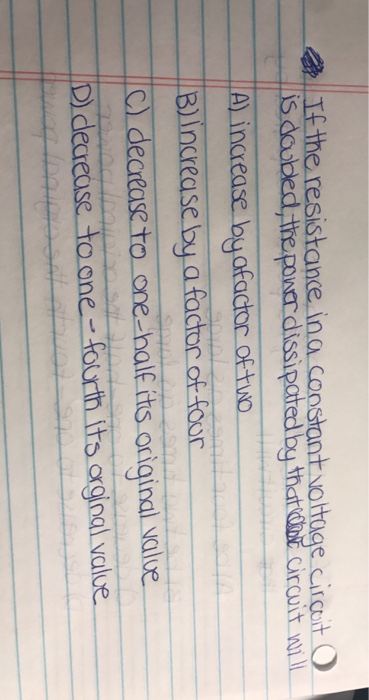 If the resistance in a constant voltage circuit
is doubled, the power dissipated by that circuit will
A) increase by a factor of two
B) increase by a factor of four
C) decrease to one-half its original value
D) decrease to one-fourth its orginal value